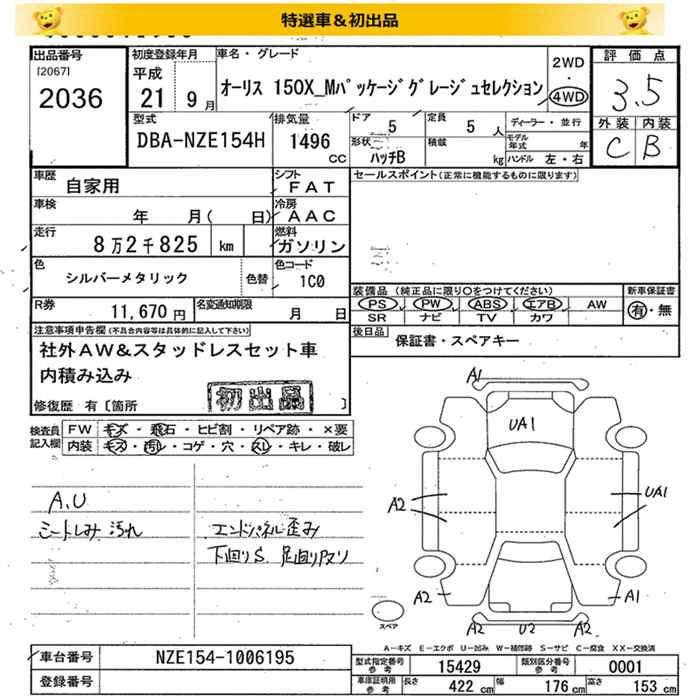 特選車＆初出品
出品番号
[2067]
2036
初度登録年月
平成
21 9月
車名・グレード
オーリス 150X_Mパッケージグレージュセレクション
2WD
・
4WD
評価点
3.5
外装 内装
C B
型式
DBA-NZE154H
排気量
1496
CC
ドア 5
形状
ハッチB
定員 5 人
積載 kg
ディーラー・並行
モデル年式 年
ハンドル 左・右
車歴 自家用
シフト
FAT
セールスポイント(正常に機能するものに限ります)
車検 年 月( 日)
冷房
AAC
走行 8万2千825 km
燃料
ガソリン
色 シルバーメタリック 色替
色コード
1C0
R券 11,670円
名変通知期限 月 日
装備品(純正品に限り○をつけてください)
PS PW ABS エアB AW
SR ナビ TV カワ
新車保証書
有・無
後日品 保証書・スペアキー
注意事項申告欄(不具合内容等は具体的に記入して下さい)
社外AW&スタッドレスセット車
内積み込み
初出品
修復歴 有〔箇所 〕
検査員
記入欄
FW キズ・飛石・ヒビ割・リペア跡・×要
内装 キズ・汚レ・コゲ・穴・スレ・キレ・破レ
A.U
シートしみ 汚れ
エンドパネル歪み
下回りS. 足回りアマリ
A1
UA1
A2
UA1
A2
A1
A2
U2
A2
スペア
A−キズ E−エクボ U−凹み W−補修跡 S−サビ C−腐食 XX−交換済
車台番号 NZE154-1006195
登録番号
型式指定番号 参考 15429
類別区分番号 参考 0001
車庫証明用 参考 長さ 422 cm 幅 176 cm 高さ 153 cm